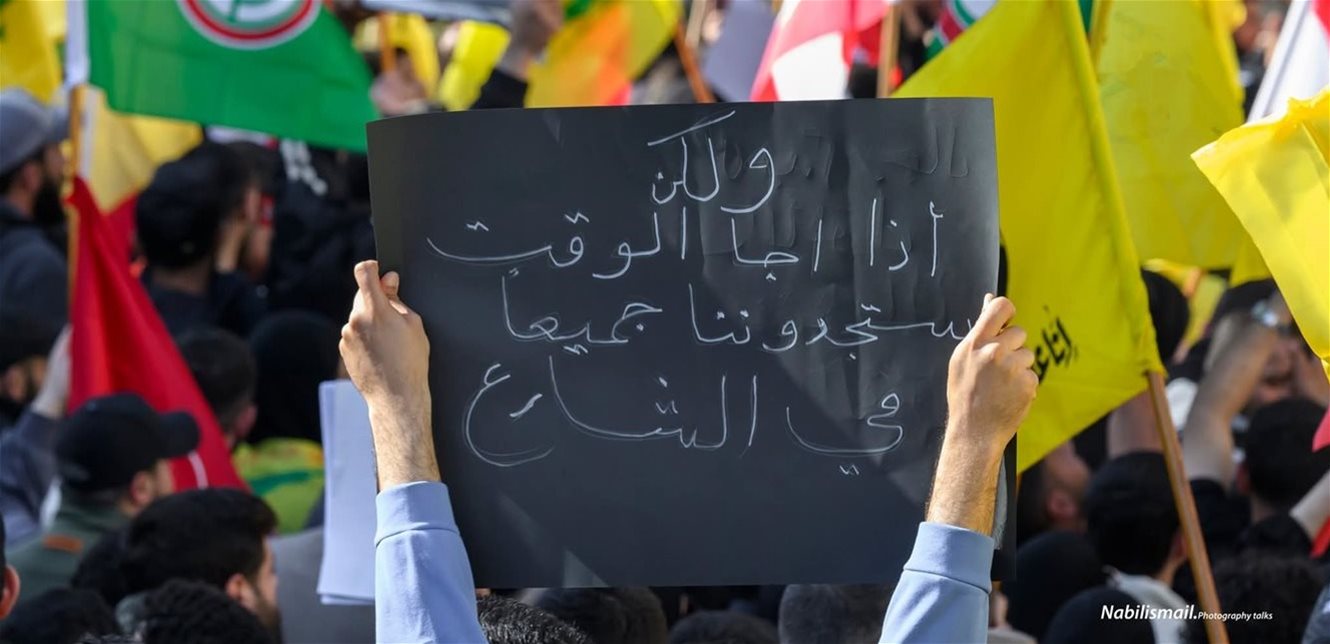 ولكن
أذا اجا الوقت
ستجدوننا جميعاً
في الشارع
Nabilismail.Photography talks